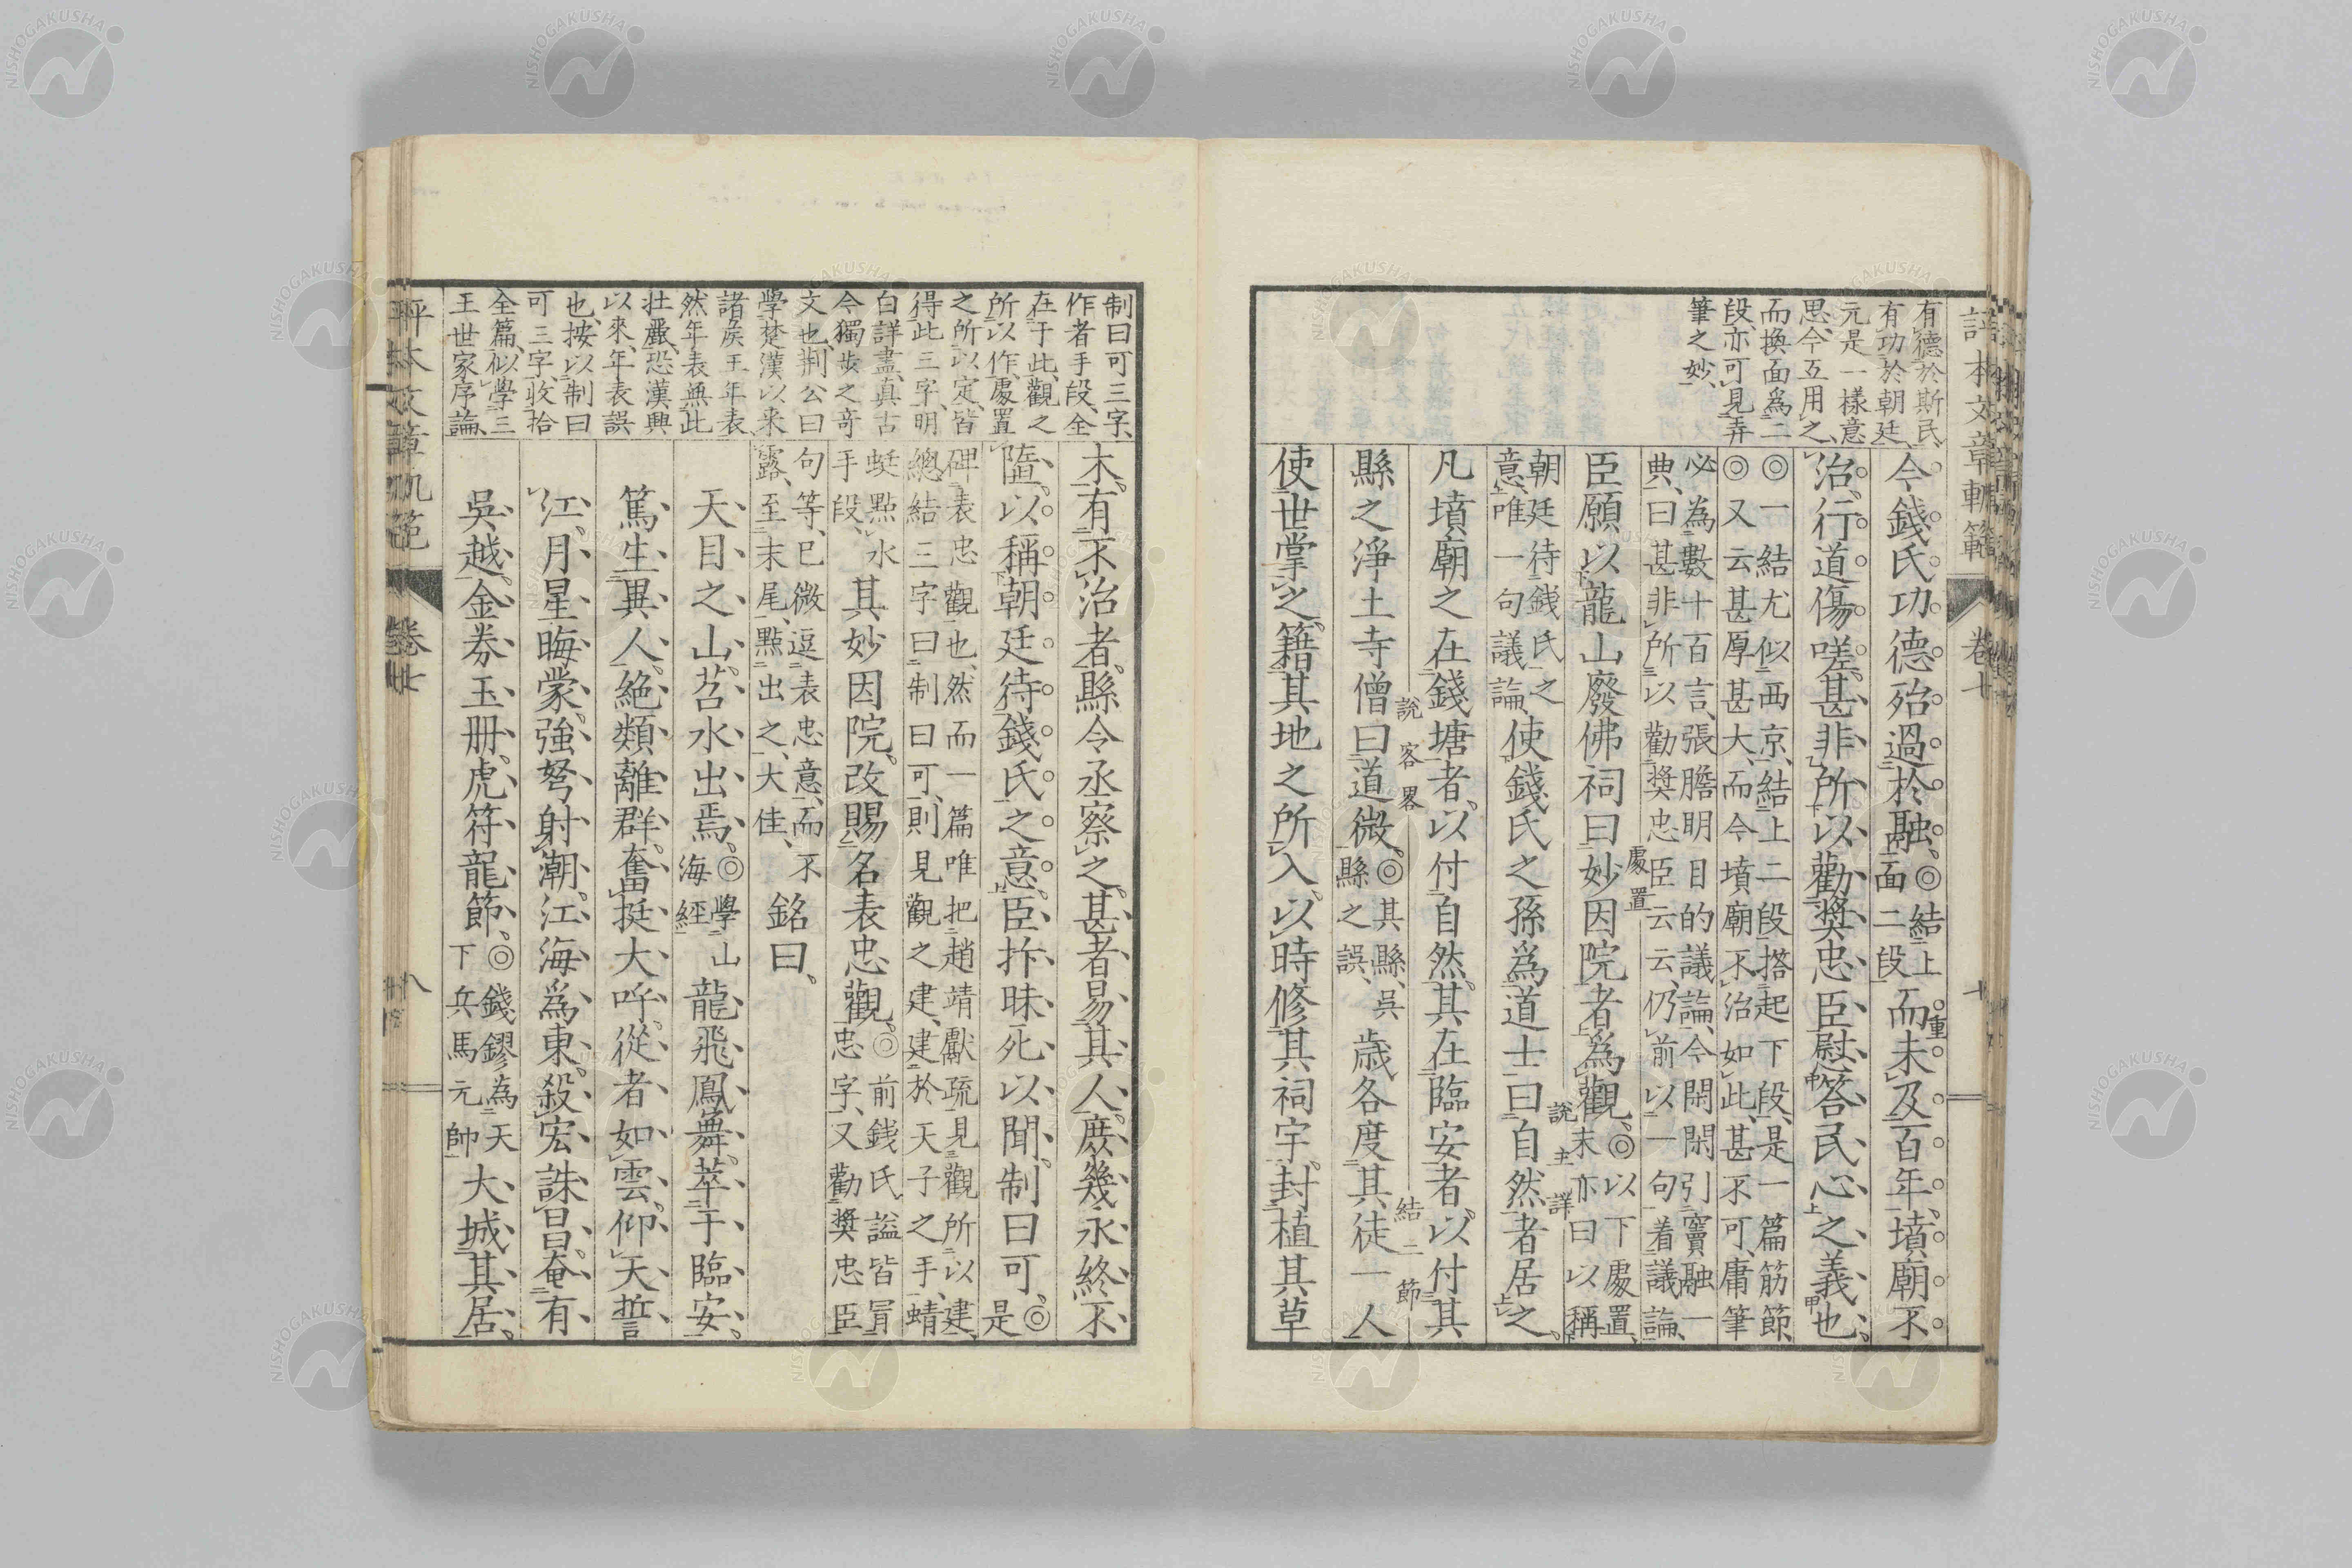 評本文章軌範
卷七
有德於斯民、
有功於朝廷、
元是一樣意
思、今互用之、
而換面爲二
段、亦可見弄
筆之妙、
今錢氏功德殆過於融、◎結上面二段而未及百年、墳廟不
治、行道傷嗟、甚非所以勸奬忠臣慰答民心之義也、
◎一結尤似西京、結上二段、搭起下段、是一篇筋節、
◎又云甚厚甚大、而今墳廟不治如此、甚不可、庸筆
必為數十百言、張膽明目的議論、今閑閑引竇融一
典、曰甚非所以勸奬忠臣云云、仍前以一句着議論、
處置
臣願以龍山廢佛祠曰妙因院者爲觀、◎以下處置、末亦曰以稱
朝廷待銭氏之意、唯一句議論、使錢氏之孫爲道士曰自然者居之、
說主詳
凡墳廟之在錢塘者、以付自然、其在臨安者、以付其
說客畧
縣之淨土寺僧曰道微、◎其縣、吳縣之誤、歳各度其徒一人
結二節
使世掌之、籍其地之所入、以時修其祠宇、封植其草
制曰可三字、
作者手段、全
在于此、觀之
所以作、處置
之所以定、皆
得此三字、明
白詳盡、真古
今獨步之奇
文也、荆公曰
學楚漢以來
諸矦王年表、
然年表無此
壯嚴、恐漢興
以來、年表誤
也、按以制曰
可三字、收拾
全篇、似學三
王世家序論、
木、有不治者、縣令丞察之、甚者易其人、庶幾永終不
隳、以稱朝廷待錢氏之意、臣抃昧死以聞、制曰可、◎是
碑表忠觀也、然而一篇唯把趙靖獻疏見觀所以建、
總結三字曰制曰可、則見觀之建、建於天子之手、蜻
蜓點水手段、其妙因院、改賜名表忠觀、◎前銭氏謚皆冐忠字、又勸奬忠臣
句等、已微逗表忠意、而不露、至末尾、點出之、大佳、銘曰、
天目之山、苕水出焉、◎學山海經龍飛鳳舞、萃于臨安、
篤生異人、絕類離群、奮挺大呼、從者如雲、仰天誓
江、月星晦蒙、強弩射潮、江海爲東、殺宏誅昌、奄有
吳越、金券玉冊、虎符龍節、◎錢鏐為天下兵馬元帥大城其居、
評本文章軌範
卷七